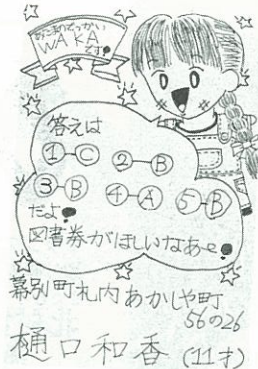 WAKA
です!
答えは
①-C ②-B
③-B ④-A ⑤-B
だよ!
図書券がほしいなあ〜!
幕別町札内あかしや町
56の26
樋口和香(11才)